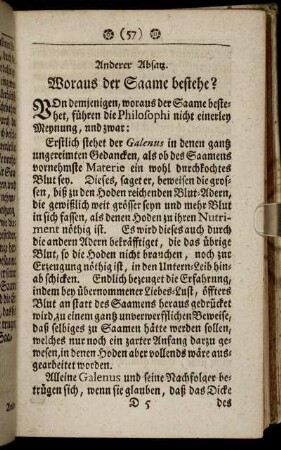 (57)
Anderer Absatz.
Woraus der Saame bestehe?
VOn demjenigen, woraus der Saame beste-
het, führen die Philosophi nicht einerley
Meynung, und zwar:
Erstlich stehet der Galenus in denen gantz
ungereimten Gedancken, als ob des Saamens
vornehmste Materie ein wohl durchkochtes
Blut sey. Dieses, saget er, beweisen die gros-
sen, biß zu den Hoden reichenden Blut-Adern,
die gewißlich weit grösser seyn und mehr Blut
in sich fassen, als denen Hoden zu ihren Nutri-
ment nöthig ist. Es wird dieses auch durch
die andern Adern bekräfftiget, die das übrige
Blut, so die Hoden nicht brauchen, noch zur
Erzeugung nöthig ist, in den Untern-Leib hin-
ab schicken. Endlich bezeuget die Erfahrung,
indem bey übernommener Liebes-Lust, öffters
Blut an statt des Saamens heraus gedrücket
wird, zu einem gantz unverwerfflichen Beweise,
daß selbiges zu Saamen hätte werden sollen,
welches nur noch ein zarter Anfang darzu gewe-
sen, in denen Hoden aber vollends wäre aus-
gearbeitet worden.
Alleine Galenus und seine Nachfolger be-
trügen sich, wenn sie glauben, daß das Dicke
D 5 des